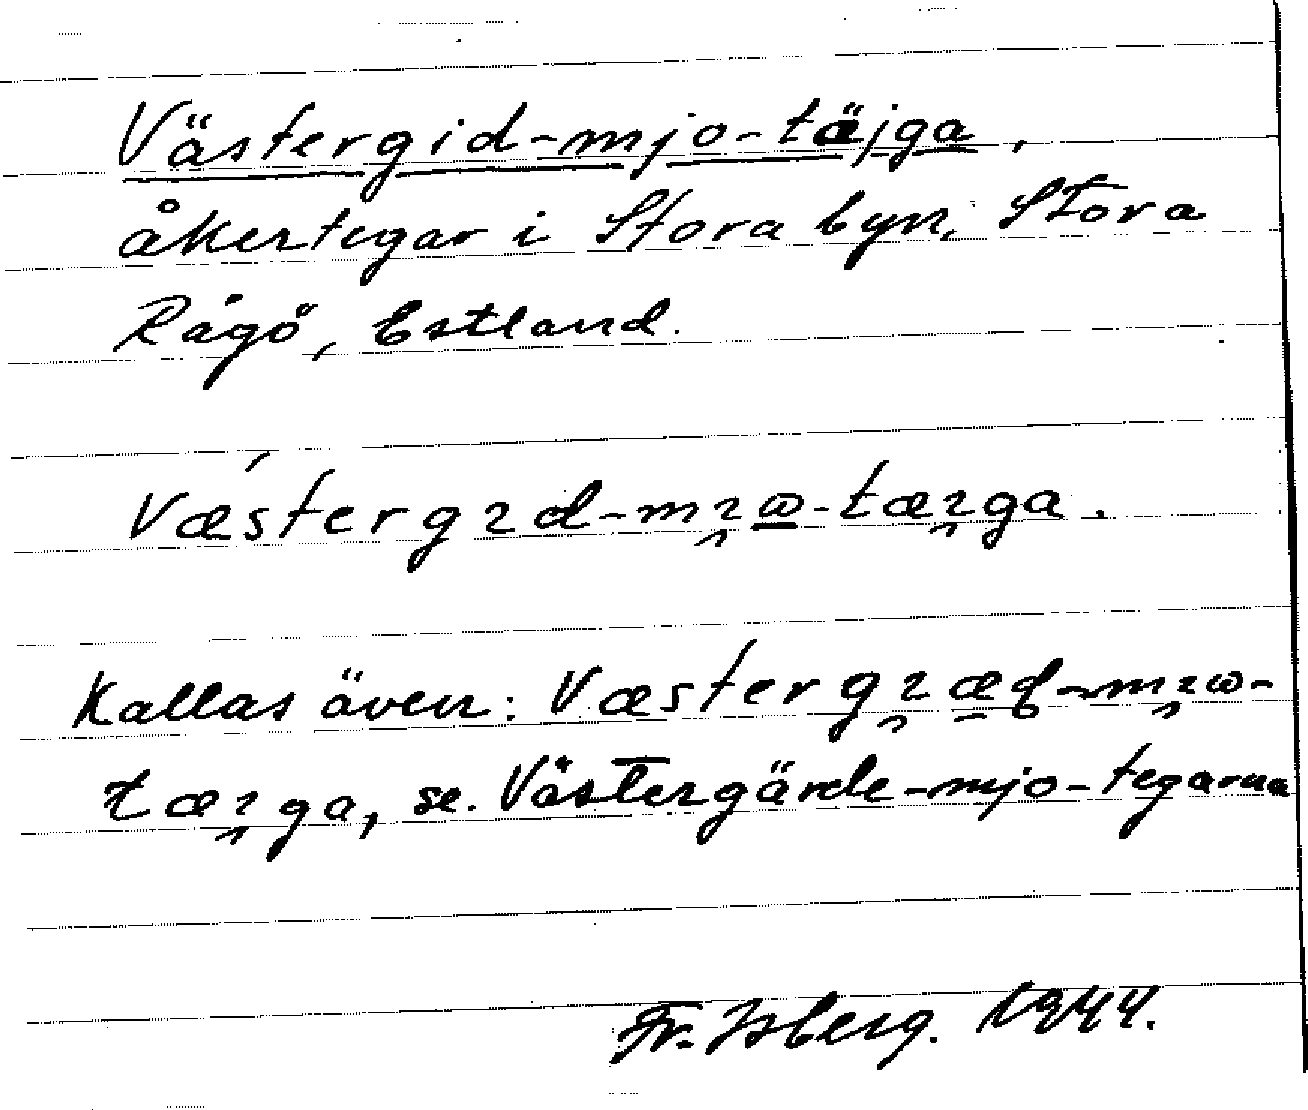 Västergid-mjo-täjga,
åkertegar i Stora byn, Stora
Rågö, Estland.
Vǽstergıd-mı̯ω̲-tæı̯ga.
Kallas även: Væstergı̯æd-mı̯ω-
tæı̯ga, se. Västergärde-mjo-tegarna
Fr. Isberg. 1944.